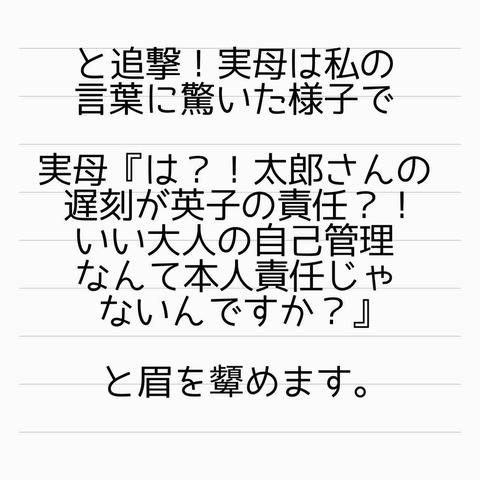 と追撃！実母は私の
言葉に驚いた様子で
実母『は？！太郎さんの
遅刻が英子の責任？！
いい大人の自己管理
なんて本人責任じゃ
ないんですか？』
と眉を顰めます。